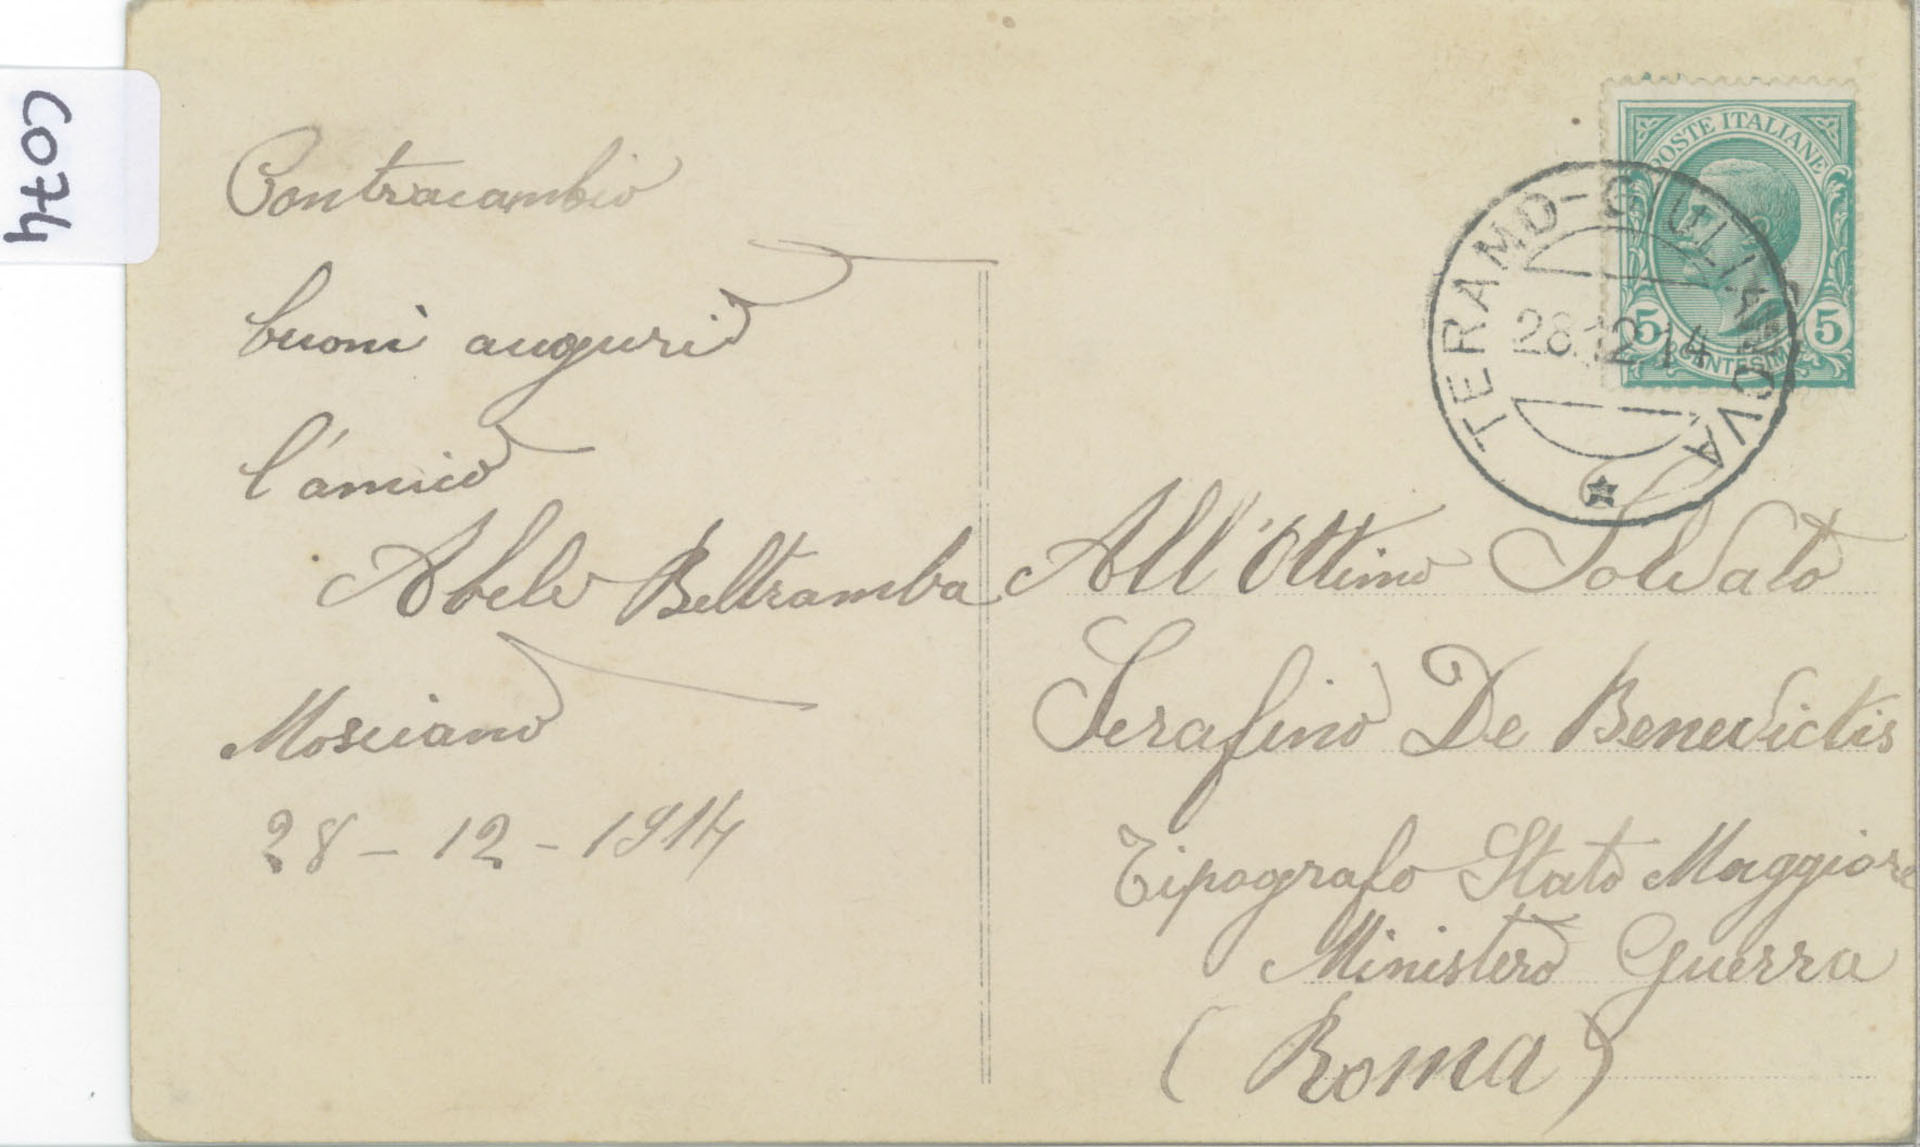 C074
Contracambio
buoni auguri
l'amico
Abele Beltramba
Mosciano
28-12-1914
POSTE ITALIANE
5 CENTESIMI 5
TERAMO-GIULIANOVA
28.12.14
All'Ottimo Soldato
Serafino De Benedictis
Tipografo Stato Maggiore
Ministero Guerra
(Roma)